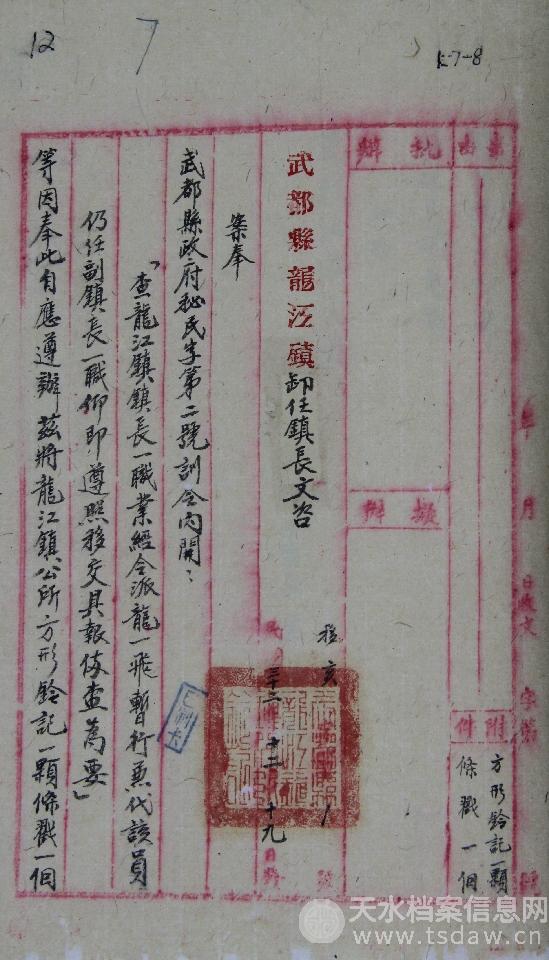 12
7
K-7-8
事由
批辦
擬辦
附件
方形鈐記一顆
條戳一個
年 月 日收文 字第 號
武都縣龍江鎮卸任鎮長文咨
移亥 1
民 三十二 十二 十九 日
案奉
武都縣政府秘民字第二號訓令內開：
「查龍江鎮鎮長一職業經令派龍一飛暫行兼代該員
仍任副鎮長一職仰即遵照移交具報備查為要」
等因奉此自應遵辦茲將龍江鎮公所方形鈐記一顆條戳一個
已制卡
天水档案信息网
www.tsdaw.cn